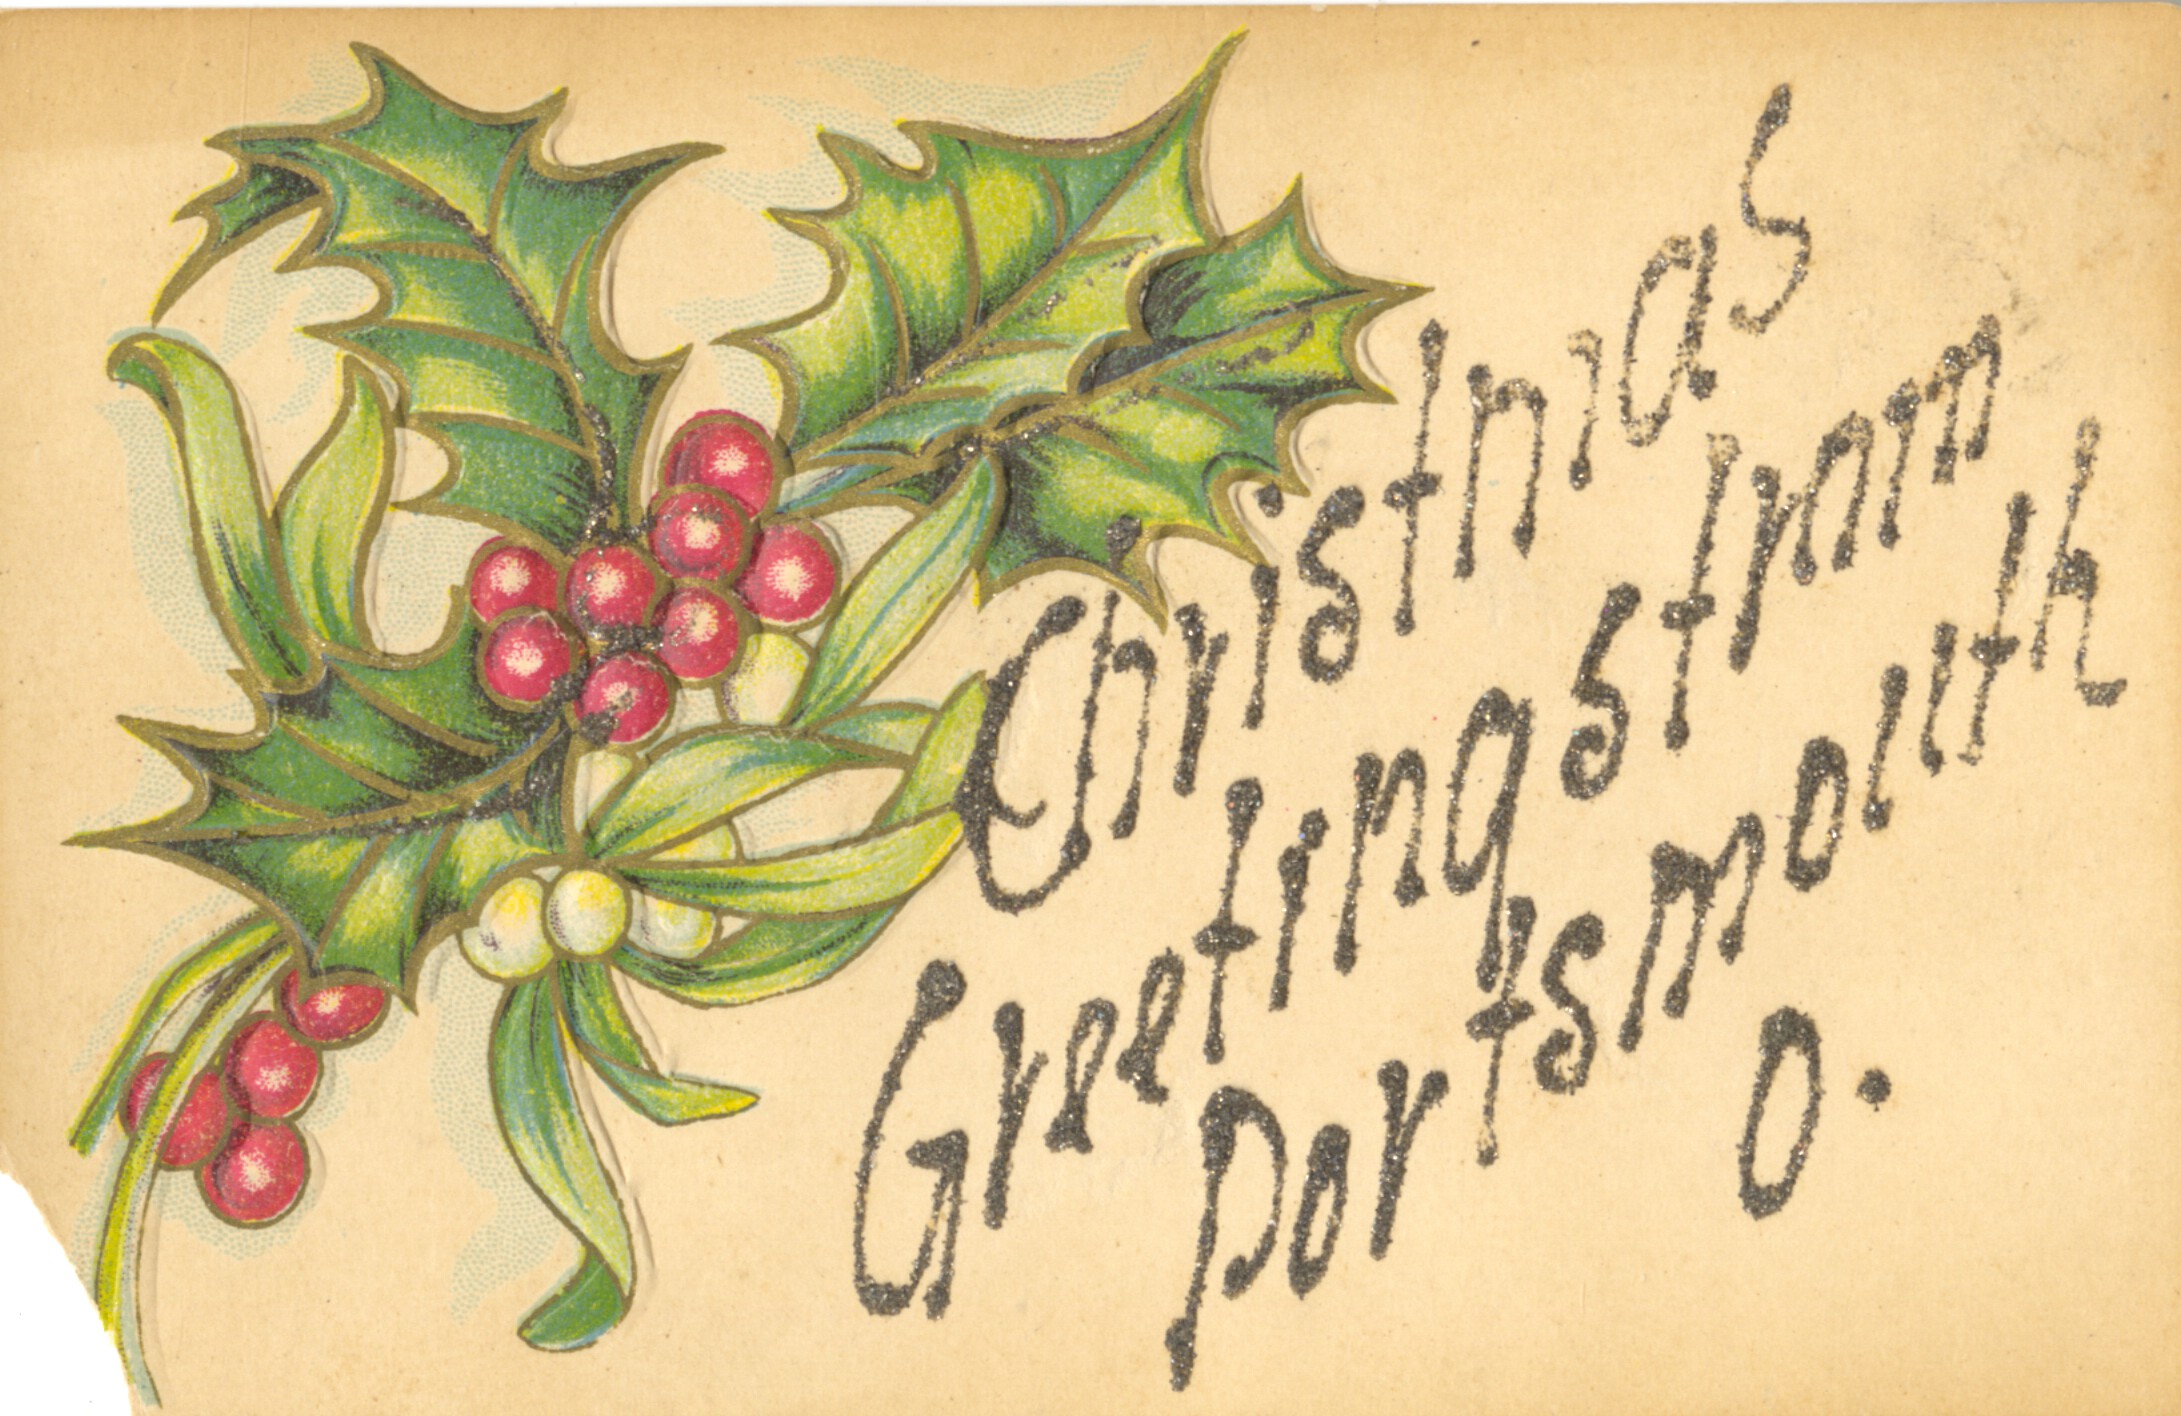 Christmas
Greetings from
Portsmouth
O.